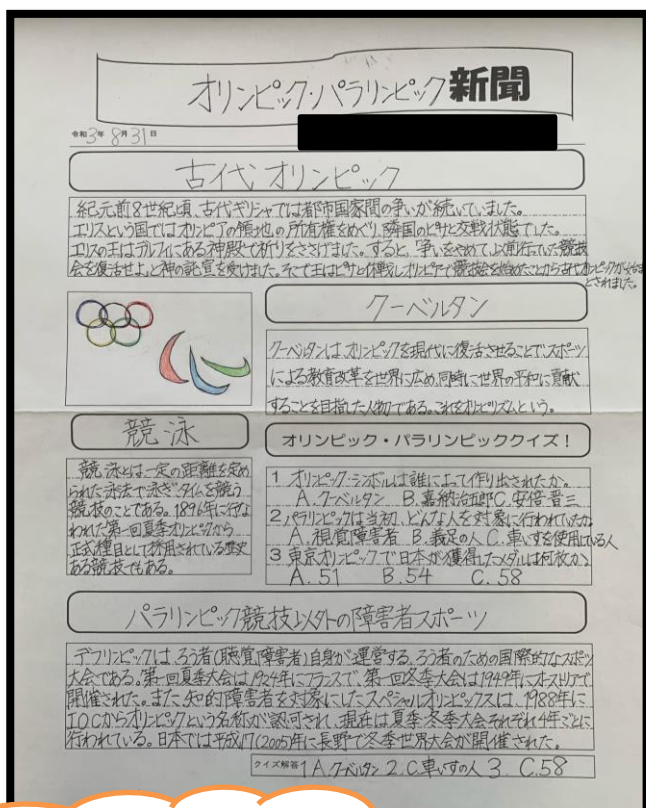 オリンピック・パラリンピック新聞
令和3年 8月31日
古代オリンピック
紀元前8世紀頃、古代ギリシャでは都市国家間の争いが続いていました。
エリスという国ではオリンピアの領地の所有権をめぐり、隣国のピサと交戦状態でした。
エリスの王はデルフィにある神殿で祈りをささげました。すると、「争いをやめて、以前行っていた競技
会を復活せよ」と神の託宣を受けました。そこで王はピサと休戦しオリンピアで競技会を始めたことから古代オリンピックが始まった
とされました。
クーベルタン
クーベルタンは、オリンピックを現代に復活させることで、スポーツ
による教育改革を世界に広め、同時に世界の平和に貢献
することを目指した人物である。これをオリンピズムという。
競泳
競泳とは一定の距離を定め
られた泳法で泳ぎ、タイムを競う
競技のことである。1896年に行な
われた第一回夏季オリンピックから
正式種目として採用されている歴史
ある競技でもある。
オリンピック・パラリンピッククイズ！
1 オリンピック・シンボルは誰によって作り出されたか。
A.クーベルタン B.嘉納治五郎 C.安倍晋三
2 パラリンピックは当初、どんな人を対象に行われていたか
A.視覚障害者 B.義足の人 C.車いすを使用している人
3 東京オリンピックで日本が獲得したメダルは何枚か
A.51 B.54 C.58
パラリンピック競技以外の障害者スポーツ
デフリンピックは、ろう者(聴覚障害者)自身が運営する、ろう者のための国際的なスポーツ
大会である。第一回夏季大会は1924年にフランスで、第一回冬季大会は1949年にオーストリアで
開催された。また、知的障害者を対象にしたスペシャルオリンピックスは、1988年に
IOCからオリンピックという名称が認可され、現在は夏季・冬季大会それぞれ4年ごとに
行われている。日本では平成17(2005)年に長野で冬季世界大会が開催された。
クイズ解答 1 A.クーベルタン 2.C.車いすの人 3. C.58